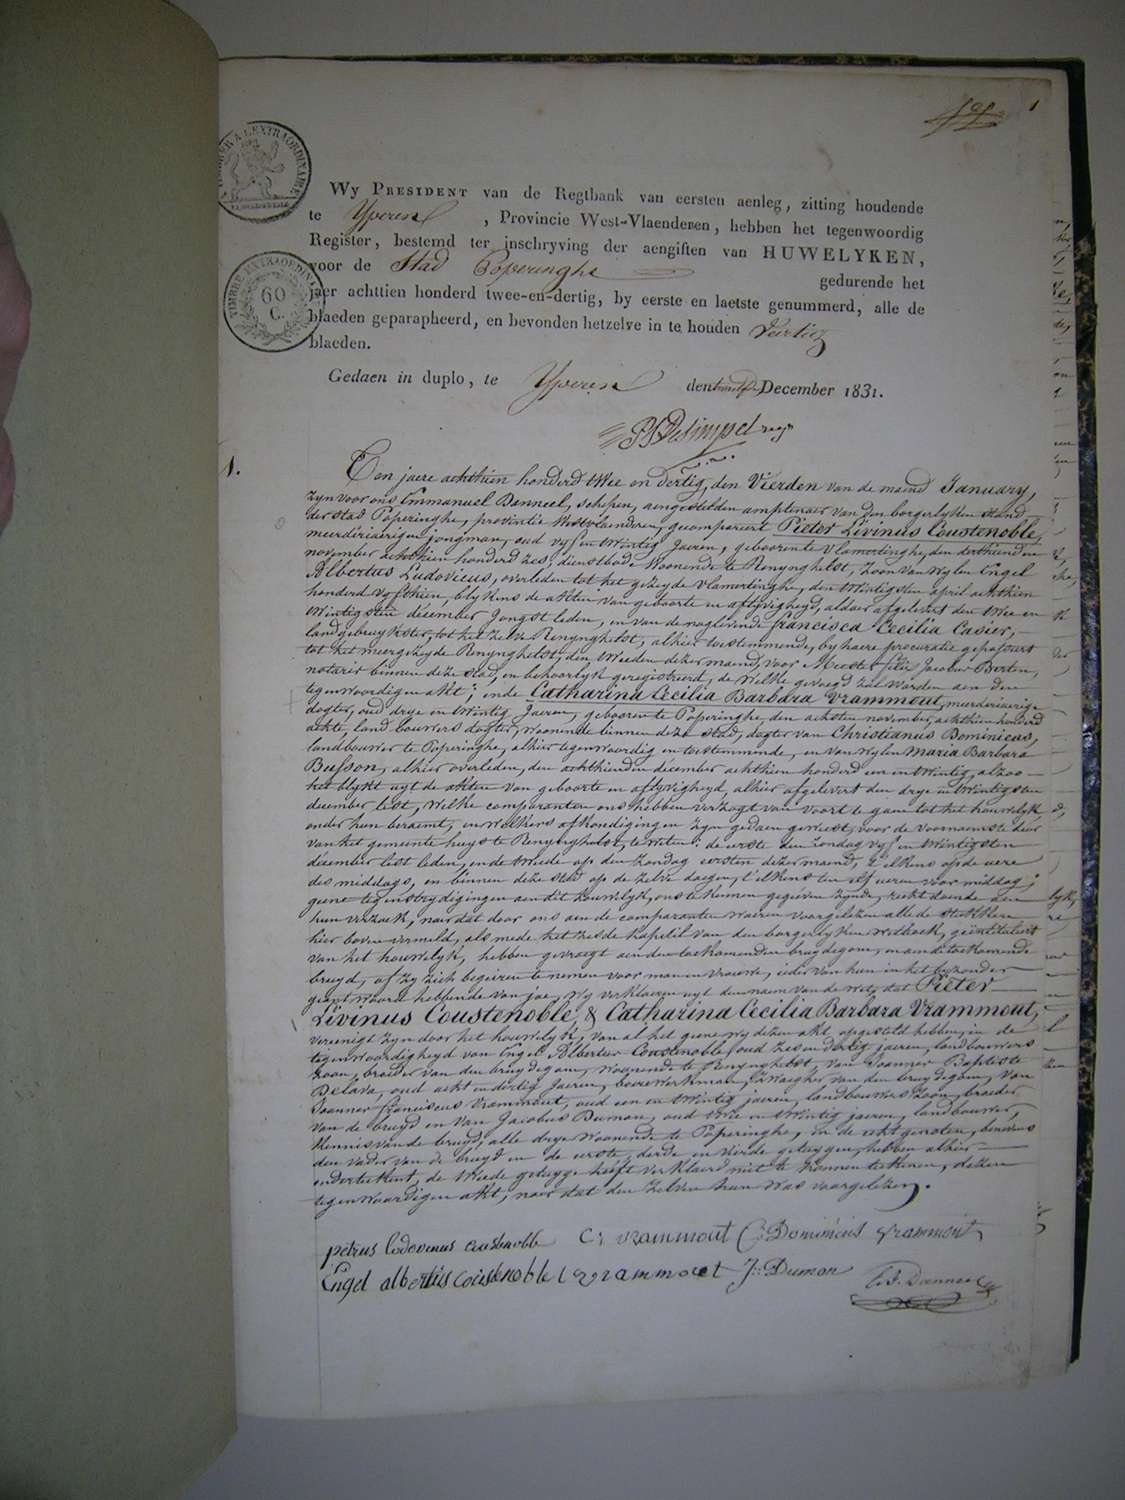 1
TIMBRE A L'EXTRAORDINAIRE
Wy PRESIDENT van de Regtbank van eersten aenleg, zitting houdende
te Yperen , Provincie West-Vlaenderen, hebben het tegenwoordig
Register, bestemd ter inschryving der aengiften van HUWELYKEN,
voor de Stad Poperinghe gedurende het
jaer achttien honderd twee-en-dertig, by eerste en laetste genummerd, alle de
blaeden geparapheerd, en bevonden hetzelve in te houden Veertig
blaeden.
TIMBRE EXTRAORDINAIRE
60
C.
Gedaen in duplo, te Yperen den December 1831.
1.
Een jaere achthien honderd twee en dertig, den Vierden van de maend January,
zyn voor ons Emmanuel Danneel, schepen, aengestelden amptenaer van den borgerlyken stand
der stad Poperinghe, provintie Westvlaenderen, gecompareert Pieter Livinus Coustenoble,
meerderjaerigen jongman, oud vyf en twintig jaeren, gebooren te Vlamertinghe, den derthienden
november achthien honderd zes, dienstbode woonende te Renynghelst, zoon van wylen Engel
Albertus Ludovicus, overleden tot het gezeyde Vlamertinghe, den twintigsten april achthien
honderd vyfthien, blykens de akten van geboorte en aflyvigheyd, aldaer afgelevert den twee en
twintigsten december jongst leden, en van de naglevende francisca Cecilia Casier,
landgebruykster, tot het zelve Renynghelst, alhier toestemmende, by haere procuratie gepasseert
tot het meergezeyde Renynghelst, den tweeden dezer maend, voor Meester felix Jacobus Berten,
notaris binnen deze stad, en behoorlyk geregistreerd, de welke gevoegd zal worden aen den
tegenwoordigen akt; ende Catharina Cecilia Barbara Vrammout, meerderjaerige
dogter, oud drye en twintig jaeren, gebooren te Poperinghe, den achsten november achthien honderd
achte, land bouwers dogter, woonende binnen deze stad, dogter van Christianus Dominicus,
landbouwer te Poperinghe, alhier tegenwoordig en toestemmende, en van wylen Maria Barbara
Busson, alhier overleden, den achthienden december achthien honderd een en twintig, alzoo
het blykt uyt de akten van geboorte en aflyvigheyd, alhier afgelevert den drye en twintigsten
december lest, welke comparanten ons hebben verzogt van voort te gaen tot het houwelyk,
onder hun beraemt, en welkers afkondigingen zyn gedaen geweest, voor de voornaemste deur
van het gemeente huys te Renynghelst, te weten: de eerste den zondag vyf en twintigsten
december lest leden, en de tweede op den zondag eersten dezer maend, t'elkens op de uere
des middags, en binnen deze stad op de zelve daegen, t'elkens ten elf ueren voor middag;
geene tegenstrydigingen aen dit houwelyk, ons te kennen gegeven zynde, recht doende aen
hun verzoek, naer dat door ons aen de comparanten waeren voorgelezen alle de stukken
hier boven vermeld, als mede het zesde kapittel van den borgerlyken wetboek, geintituleert
van het houwelyk, hebben gevraegt aen den toekomenden bruydegom, en aen de toekomende
bruyd, of zy zich begeiren te nemen voor man en vrouwe, ieder van hun in het byzonder
geantwoord hebbende van jae, wy verklaeren uyt den naem van de wet, dat Pieter
Livinus Coustenoble, & Catharina Cecilia Barbara Vrammout,
vereenigt zyn door het houwelyk, van al het geene wy dezen akt opgesteld hebben, in de
tegenwoordigheyd van Engel Albertus Coustenoble, oud zes en dertig jaeren, landbouwers
zoon, broeder van den bruydegom, woonende te Renynghelst, van Joannes Baptiste
Delava, oud acht en dertig jaeren, boerewerkman, zwaegher van den bruydegom, van
Joannes franciscus Vrammout, oud een en twintig jaeren, landbouwers zoon, broeder
van de bruyd en van Jacobus Dumon, oud twee en twintig jaeren, landbouwer,
kennis van de bruyd, alle drye woonende te Poperinghe, en de echtgenoten, benevens
den vader van de bruyd en de eerste, derde en vierde getuygen, hebben alhier
onderteekent, de tweede getuyge heeft verklaerd niet te konnen teekenen, dezen
tegenwoordigen akt, naer dat den zelven hun was voorgelezen.
petrus lodovicus coustenoble C: vrammout C: Dominicus vrammout
Engel albertus coustenoble vrammout J: Dumon